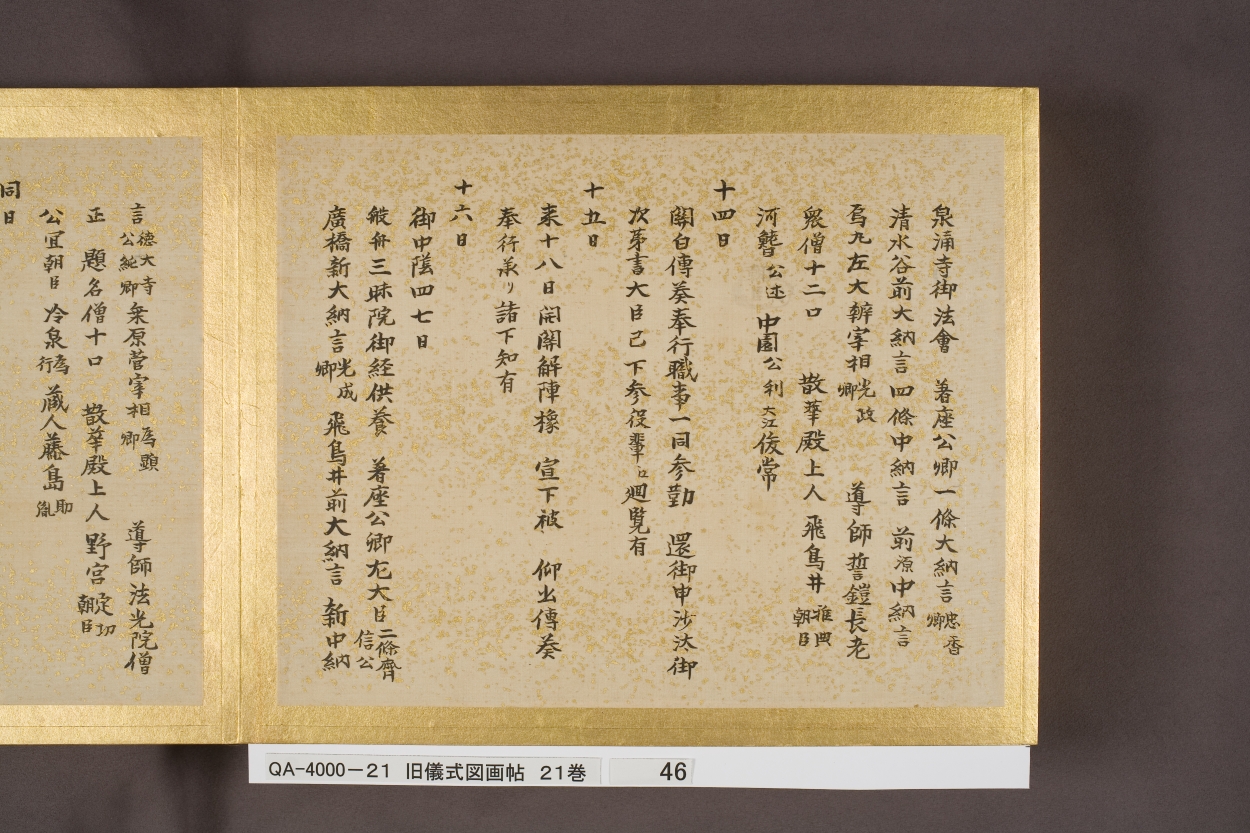 泉涌寺御法會　著座公卿一條大納言忠香卿
清水谷前大納言四條中納言　前源中納言
烏丸左大辨宰相光政卿　導師誓鎧長老
衆僧十二口　散華殿上人　飛鳥井雅典朝臣
河鰭公述　中園公利　大江俊常
十四日
關白傳奏奉行職事一同参勤　還御申沙汰御
次第書大臣已下参役輩江廻覧有
十五日
来十八日開關解陣㨾　宣下被　仰出傳奏
奉行承リ諸下知有
十六日
御中陰四七日
般舟三昧院御経供養　著座公卿左大臣二條齊信公
廣橋新大納言光成卿　飛鳥井前大納言　新中納
言徳大寺公純卿　桒原菅宰相為顕卿　導師法光院僧
正　題名僧十口　散華殿上人　野宮定功朝臣
公宜朝臣　冷泉為行　藏人藤島助胤
同日
QA-4000-21　旧儀式図画帖　21巻　46